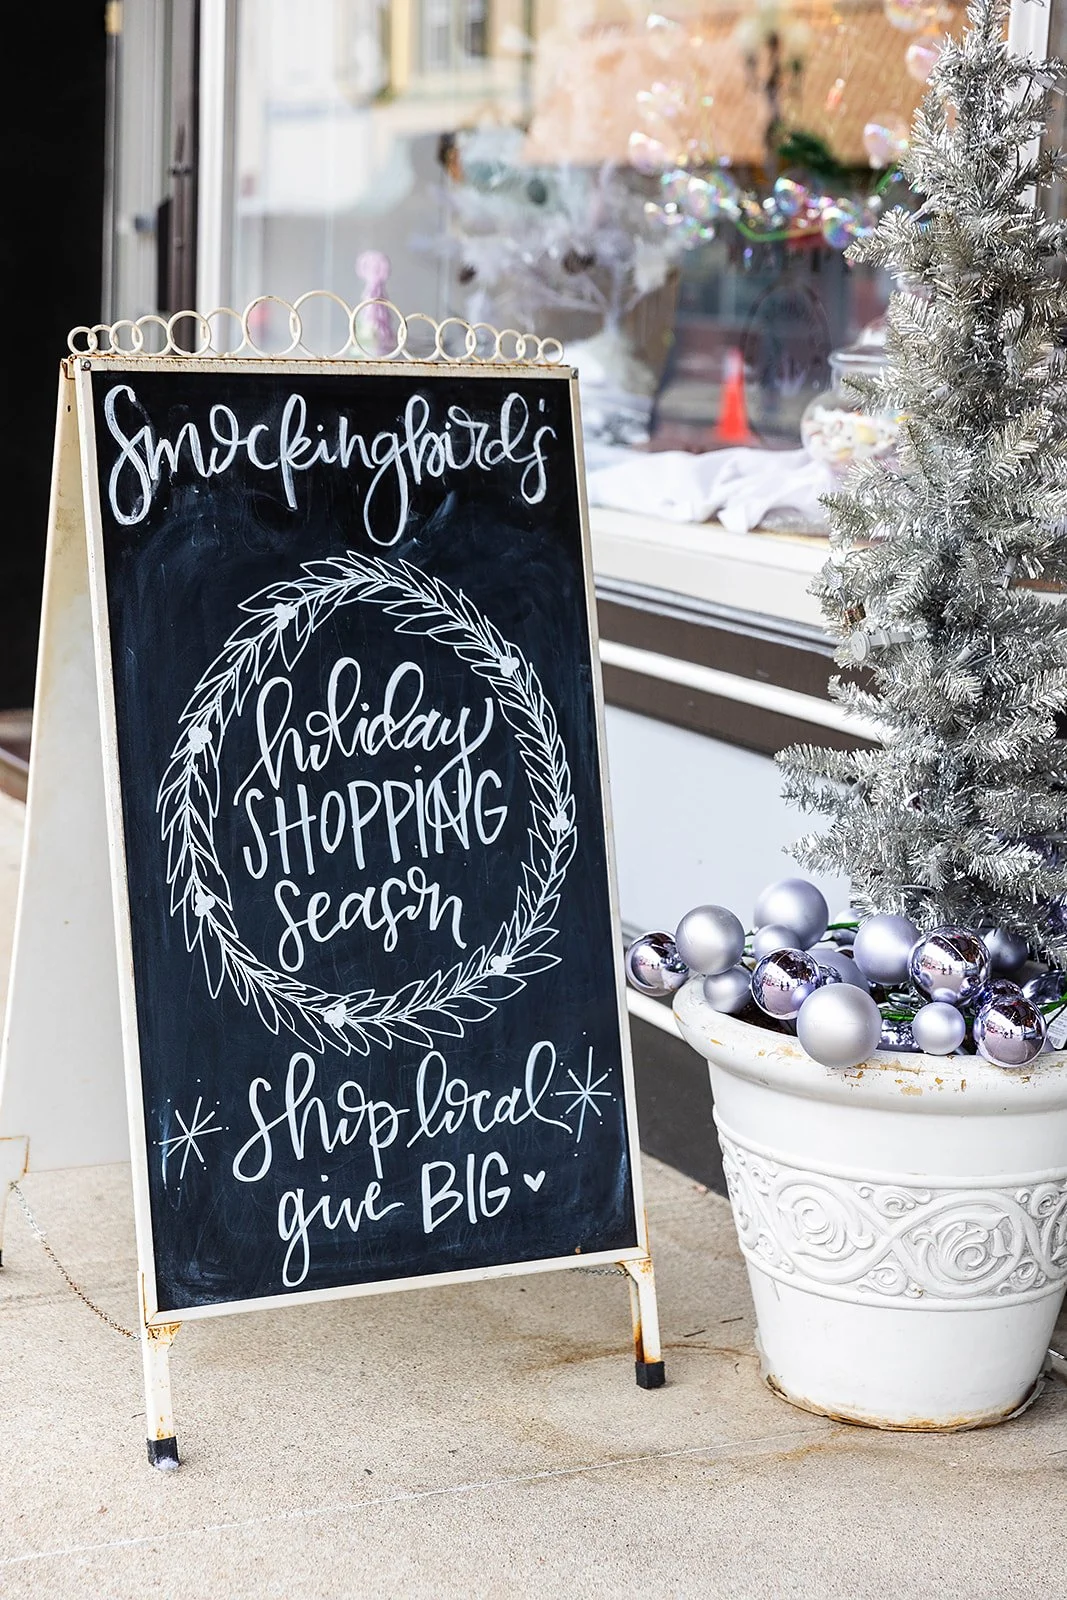 Smockingbird's
holiday
SHOPPING
season
Shop local
give BIG